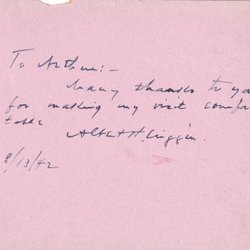 To Arthur:-
Many thanks to you
for making my visit comfor
table
Albert H. Wiggin.
8/13/42